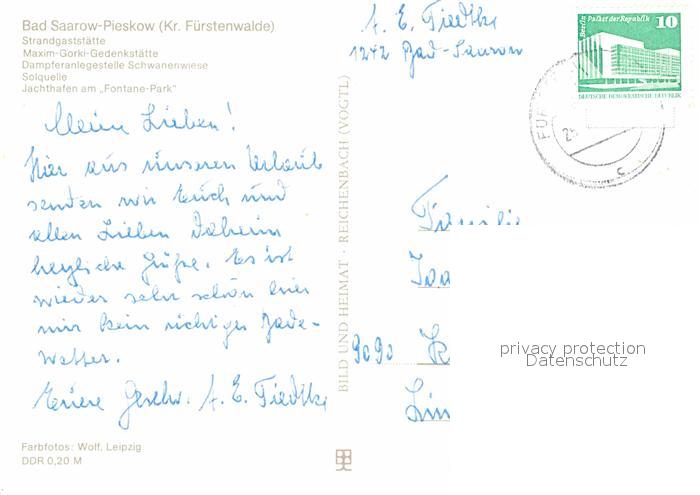 Bad Saarow-Pieskow (Kr. Fürstenwalde)
Strandgaststätte
Maxim-Gorki-Gedenkstätte
Dampferanlegestelle Schwanenwiese
Solquelle
Jachthafen am „Fontane-Park"
Meine Lieben!
Hier aus unseren Urlaub
senden wir Euch und
allen Lieben Daheim
herzliche Grüße. Es ist
wieder sehr schön hier
nur kein richtiges Bade-
wetter.
Eure Geschw. A. E. Tiedtke
Farbfotos: Wolf, Leipzig
DDR 0,20 M
BILD UND HEIMAT · REICHENBACH (VOGTL)
A. E. Tiedtke
1242 Bad-Saarow
Berlin Palast der Republik
10
DEUTSCHE DEMOKRATISCHE REPUBLIK
FÜR
c
Familie
9090 K
Lin
privacy protection
Datenschutz